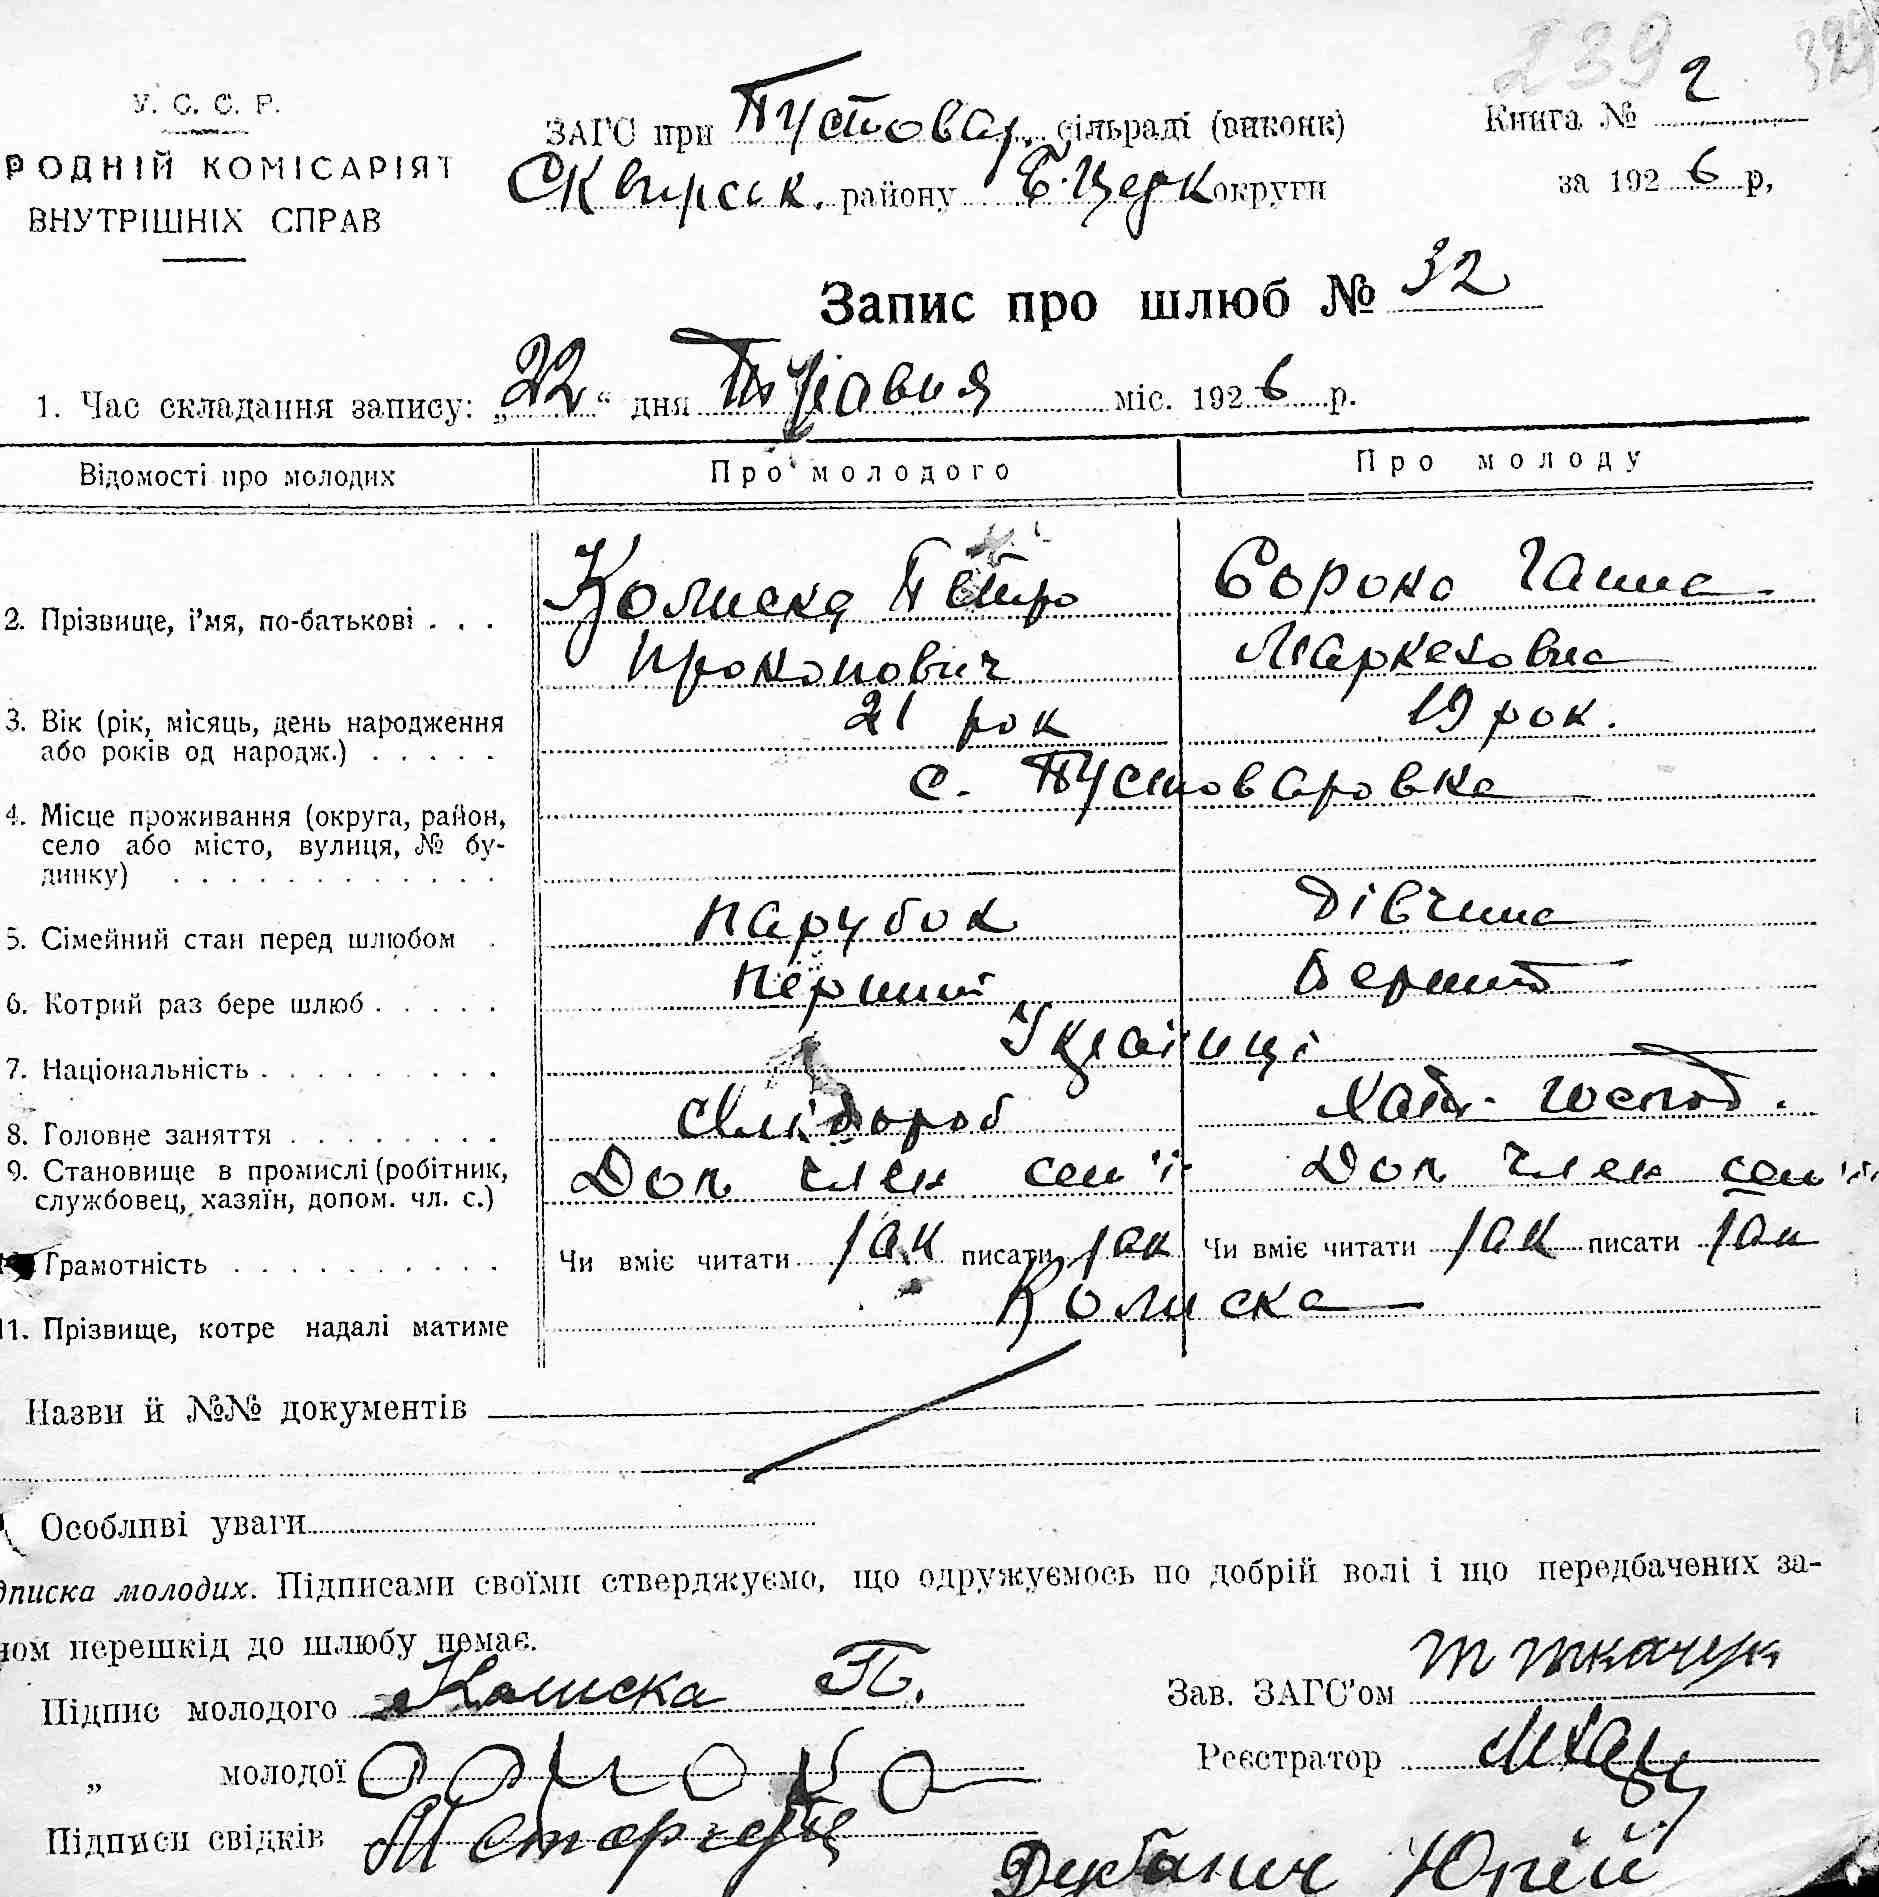 239 329
У. С. С. Р.
РОДНІЙ КОМІСАРІЯТ
ВНУТРІШНІХ СПРАВ
ЗАГС при Пустовар. сільраді (виконк)
Сквирськ. району Б.Церк округи
Книга № 2
за 1926 р,
Запис про шлюб № 32
1. Час складання запису: „22“ дня Травня міс. 1926 р.
Відомості про молодих
Про молодого
Про молоду
2. Прізвище, і'мя, по-батькові . . .
Колиска Петро
Прокопович
Сорока Ганна
3. Вік (рік, місяць, день народження
або років од народж.) . . . . .
21 рок
19 рок.
4. Місце проживання (округа, район,
село або місто, вулиця, № бу-
динку) . . . . . . . . . . . .
с. Пустоваровка
5. Сімейний стан перед шлюбом .
парубок
дівчина
6. Котрий раз бере шлюб . . . . .
перший
перший
7. Національність . . . . . . . . .
Українці
8. Головне заняття . . . . . . . .
хлібороб
Хатн. господ.
9. Становище в промислі (робітник,
службовец, хазяїн, допом. чл. с.)
Доп член сем'ї
Доп член сем'ї
Грамотність . . . . . . . . . .
Чи вміє читати так писати так
Чи вміє читати так писати так
11. Прізвище, котре надалі матиме
Колиска
Назви й №№ документів
Особливі уваги
дписка молодих. Підписами своїми стверджуємо, що одружуємось по добрій волі і що передбачених за-
ном перешкід до шлюбу немає.
Підпис молодого Колиска П.
„ молодої Сорока
Підписи свідків
Зав. ЗАГС'ом Т Ткачук
Реєстратор
Юрій